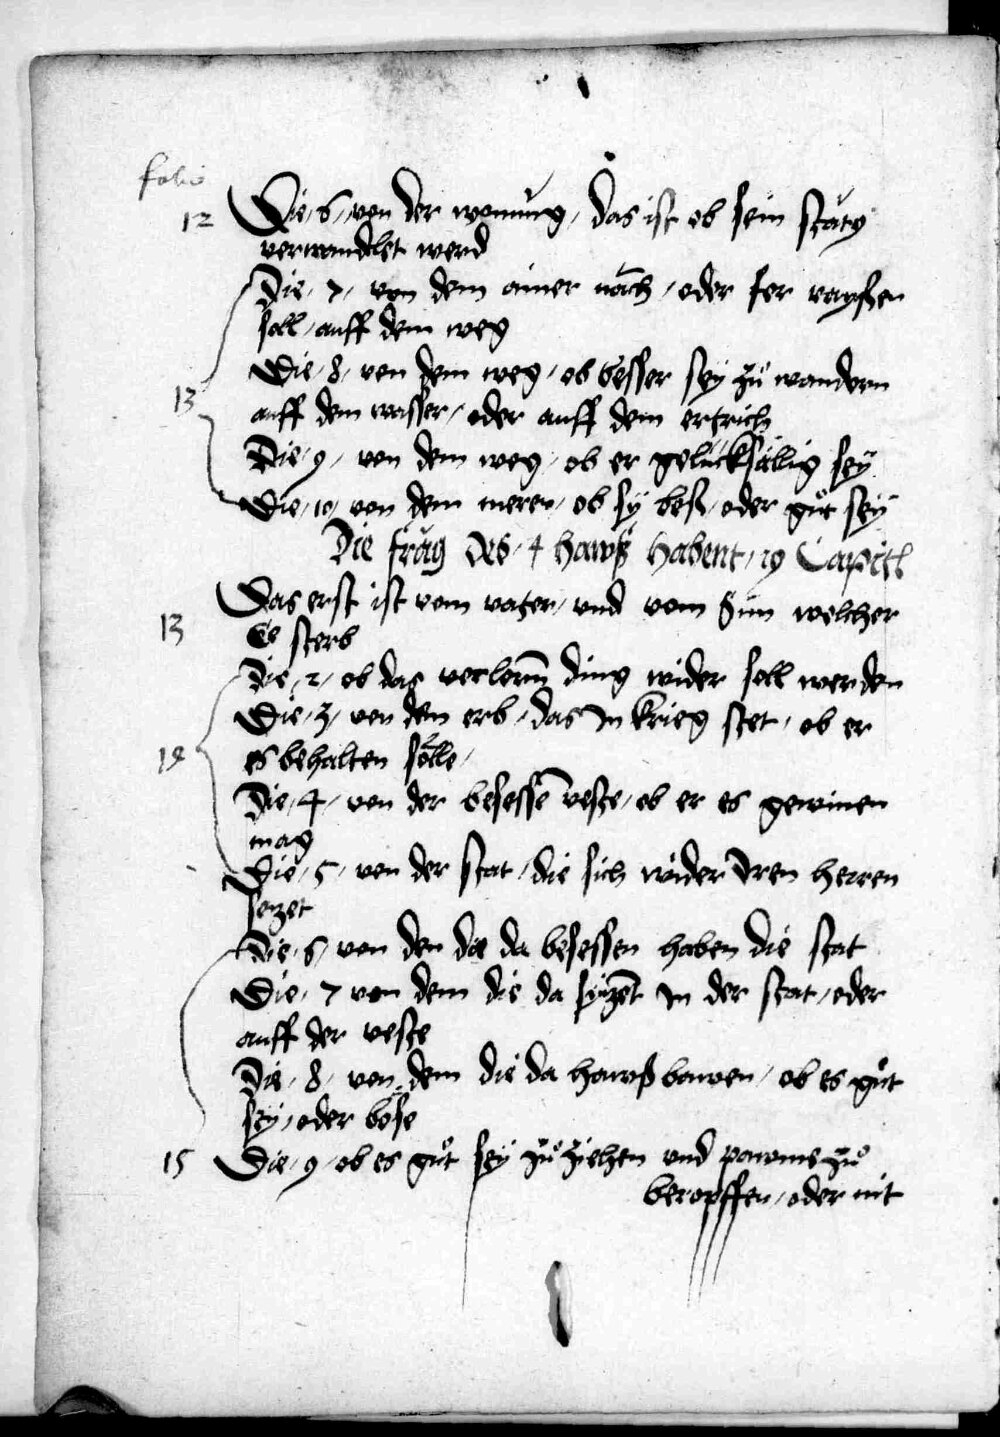 folio
12 Die · 6 · von der wonung / das ist ob sein stäty
verwandelt werd
Die · 7 · von dem ainer nach / oder fer raysen
soll / auff dem weg
13 Die · 8 · von dem weg / ob besser sey zů wandern
auff dem wasser / oder auff dem ertrich
Die · 9 · von dem weg / ob er gelücksällig sey
Die · 10 · von dem meren / ob sy beß / oder gůt sey
Die frag des · 4 hawß habent · 19 Capitl
13 Das erst ist vom vater / vnd vom Sun welcher
Ee sterb
Die · 2 · ob das verlorn ding wider soll werden
Die · 3 · von dem erb / das Jn krieg stet / ob er
14 es behalten sölle /
Die · 4 · von der besessen veste / ob er es gewinen
mag
Die · 5 · von der stat / die sich wider Jren herren
setzet
Die · 6 · von den die da besessen haben die stat
Die · 7 von dem die da sytzent Jn der stat / oder
auff der veste
Die · 8 · von dem die da hawß bawen / ob es gůt
sey / oder böse
15 Die · 9 · ob es gůt sey zů ziehen vnd pawme zů
beropffen / oder nit